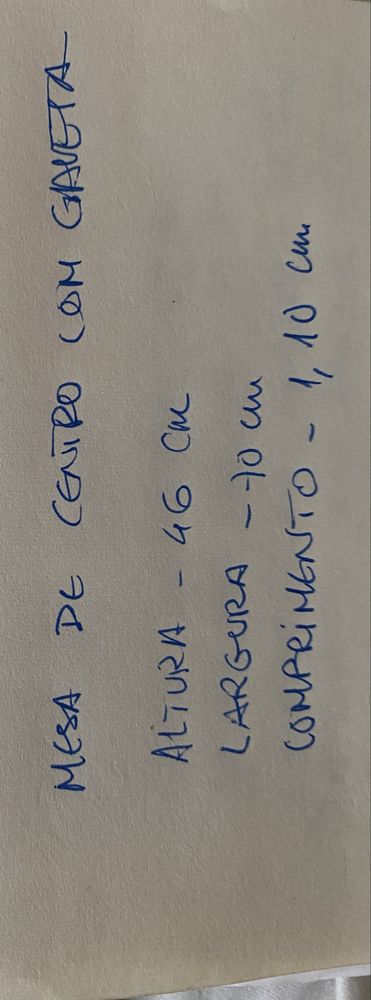 MESA DE CENTRO COM GAVETA
ALTURA - 46 cm
LARGURA - 70 cm
COMPRIMENTO - 1,10 cm